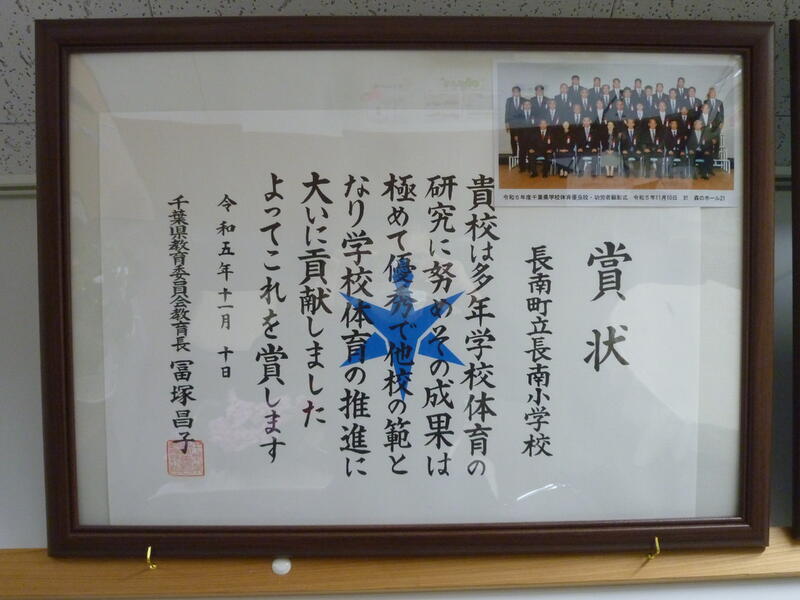 賞状
長南町立長南小学校
貴校は多年学校体育の
研究に努めその成果は
極めて優秀で他校の範と
なり学校体育の推進に
大いに貢献しました
よってこれを賞します
令和五年十一月十日
千葉県教育委員会教育長 冨塚昌子
令和5年度千葉県学校体育優良校・功労者顕彰式 令和5年11月10日 於 森のホール21